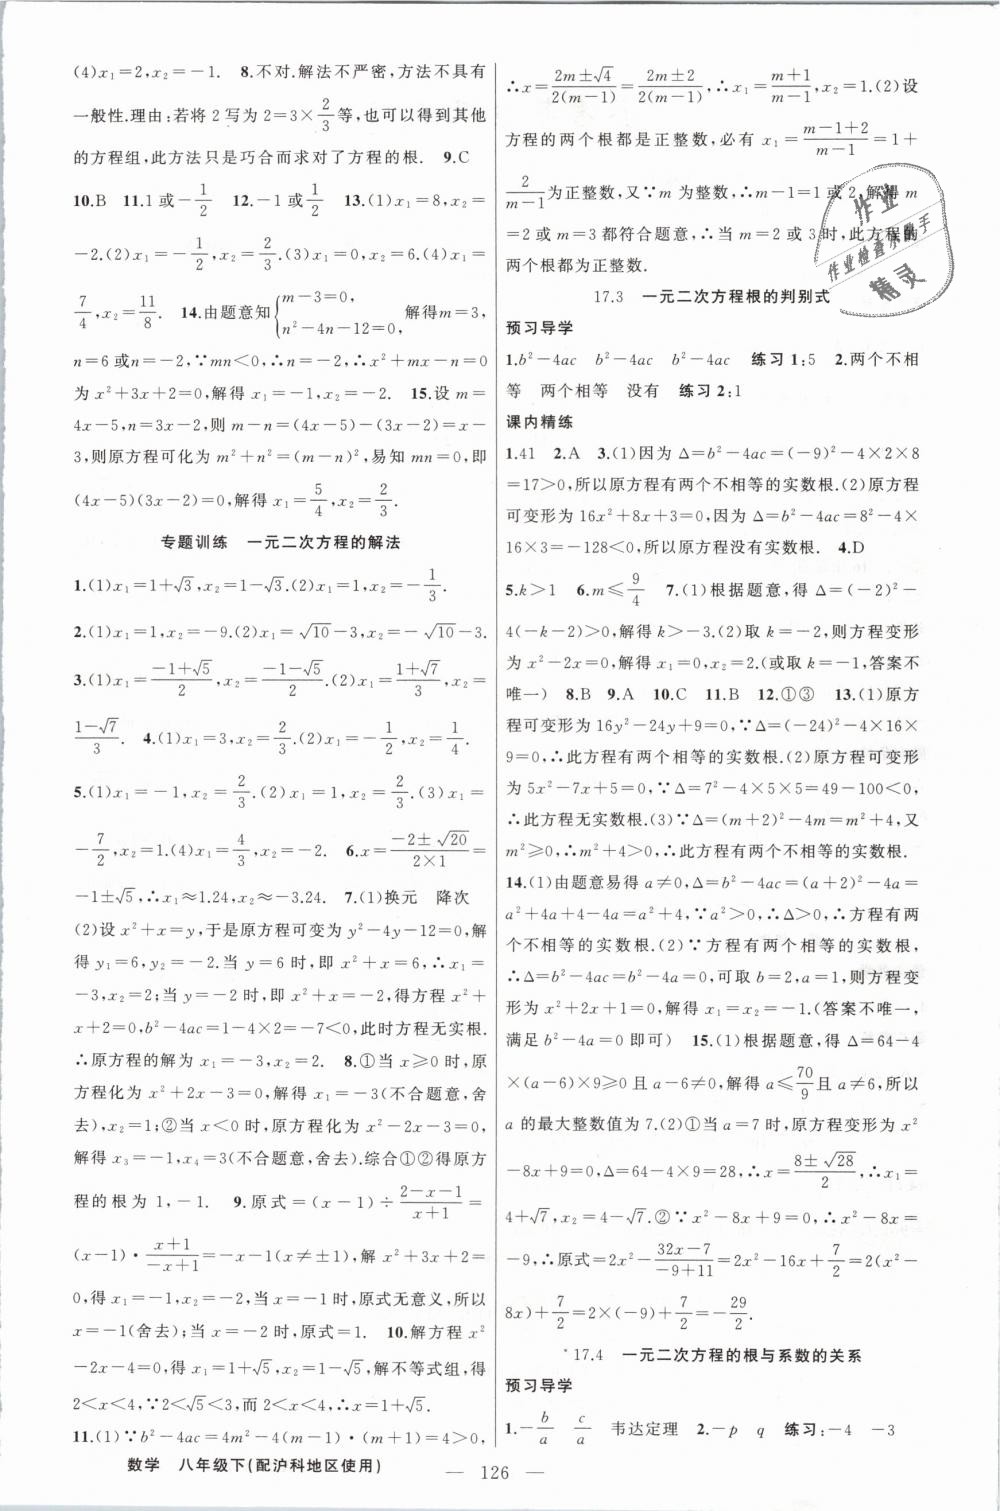 (4)x₁=2,x₂=-1. 8.不对.解法不严密,方法不具有
一般性.理由:若将2写为2=3×2/3等,也可以得到其他
的方程组,此方法只是巧合而求对了方程的根. 9.C
10.B 11.1或-1/2 12.-1或1/2 13.(1)x₁=8,x₂=
-2.(2)x₁=-1/2,x₂=2/3.(3)x₁=0,x₂=6.(4)x₁=
7/4,x₂=11/8. 14.由题意知{m-3=0, n²-4n-12=0, 解得m=3,
n=6或n=-2,∵mn<0,∴n=-2,∴x²+mx-n=0
为x²+3x+2=0,解得x₁=-1,x₂=-2. 15.设m=
4x-5,n=3x-2,则m-n=(4x-5)-(3x-2)=x-
3,则原方程可化为m²+n²=(m-n)²,易知mn=0,即
(4x-5)(3x-2)=0,解得x₁=5/4,x₂=2/3.
专题训练 一元二次方程的解法
1.(1)x₁=1+√3,x₂=1-√3.(2)x₁=1,x₂=-1/3.
2.(1)x₁=1,x₂=-9.(2)x₁=√10-3,x₂=-√10-3.
3.(1)x₁=(-1+√5)/2,x₂=(-1-√5)/2.(2)x₁=(1+√7)/3,x₂=
(1-√7)/3. 4.(1)x₁=3,x₂=2/3.(2)x₁=-1/2,x₂=1/4.
5.(1)x₁=-1,x₂=2/3.(2)x₁=1,x₂=2/3.(3)x₁=
-7/2,x₂=1.(4)x₁=4/3,x₂=-2. 6.x=(-2±√20)/(2×1)=
-1±√5,∴x₁≈1.24,x₂≈-3.24. 7.(1)换元 降次
(2)设x²+x=y,于是原方程可变为y²-4y-12=0,解
得y₁=6,y₂=-2.当y=6时,即x²+x=6,∴x₁=
-3,x₂=2;当y=-2时,即x²+x=-2,得方程x²+
x+2=0,b²-4ac=1-4×2=-7<0,此时方程无实根.
∴原方程的解为x₁=-3,x₂=2. 8.①当x≥0时,原
方程化为x²+2x-3=0,解得x₁=-3(不合题意,舍
去),x₂=1;②当x<0时,原方程化为x²-2x-3=0,
解得x₃=-1,x₄=3(不合题意,舍去).综合①②得原方
程的根为1,-1. 9.原式=(x-1)÷(2-x-1)/(x+1)=
(x-1)·(x+1)/(-x+1)=-x-1(x≠±1),解x²+3x+2=
0,得x₁=-1,x₂=-2,当x=-1时,原式无意义,所以
x=-1(舍去);当x=-2时,原式=1. 10.解方程x²
-2x-4=0,得x₁=1+√5,x₂=1-√5,解不等式组,得
2<x<4,∵2<√5<3,而2<x<4,∴x=1+√5.
11.(1)∵b²-4ac=4m²-4(m-1)·(m+1)=4>0,
∴x=(2m±√4)/(2(m-1))=(2m±2)/(2(m-1)),∴x₁=(m+1)/(m-1),x₂=1.(2)设
方程的两个根都是正整数,必有x₁=(m-1+2)/(m-1)=1+
2/(m-1)为正整数,又∵m为整数,∴m-1=1或2,解得m
=2或m=3都符合题意,∴当m=2或3时,此方程的
两个根都为正整数.
17.3 一元二次方程根的判别式
预习导学
1.b²-4ac b²-4ac b²-4ac 练习1:5 2.两个不相
等 两个相等 没有 练习2:1
课内精练
1.41 2.A 3.(1)因为Δ=b²-4ac=(-9)²-4×2×8
=17>0,所以原方程有两个不相等的实数根.(2)原方程
可变形为16x²+8x+3=0,因为Δ=b²-4ac=8²-4×
16×3=-128<0,所以原方程没有实数根. 4.D
5.k>1 6.m≤9/4 7.(1)根据题意,得Δ=(-2)²-
4(-k-2)>0,解得k>-3.(2)取k=-2,则方程变形
为x²-2x=0,解得x₁=0,x₂=2.(或取k=-1,答案不
唯一) 8.B 9.A 10.C 11.B 12.①③ 13.(1)原方
程可变形为16y²-24y+9=0,∵Δ=(-24)²-4×16×
9=0,∴此方程有两个相等的实数根.(2)原方程可变形
为5x²-7x+5=0,∵Δ=7²-4×5×5=49-100<0,
∴此方程无实数根.(3)∵Δ=(m+2)²-4m=m²+4,又
m²≥0,∴m²+4>0,∴此方程有两个不相等的实数根.
14.(1)由题意易得a≠0,Δ=b²-4ac=(a+2)²-4a=
a²+4a+4-4a=a²+4,∵a²>0,∴Δ>0,∴方程有两
个不相等的实数根.(2)∵方程有两个相等的实数根,
∴Δ=b²-4ac=b²-4a=0,可取b=2,a=1,则方程变
形为x²+2x+1=0,解得x₁=x₂=-1.(答案不唯一,
满足b²-4a=0即可) 15.(1)根据题意,得Δ=64-4
×(a-6)×9≥0且a-6≠0,解得a≤70/9且a≠6,所以
a的最大整数值为7.(2)①当a=7时,原方程变形为x²
-8x+9=0,Δ=64-4×9=28,∴x=(8±√28)/2,∴x₁=
4+√7,x₂=4-√7.②∵x²-8x+9=0,∴x²-8x=
-9,∴原式=2x²-(32x-7)/(-9+11)=2x²-16x+7/2=2(x²-
8x)+7/2=2×(-9)+7/2=-29/2.
*17.4 一元二次方程的根与系数的关系
预习导学
1.-b/a c/a 韦达定理 2.-p q 练习:-4 -3
数学 八年级下(配沪科地区使用)
— 126 —
作业
作业检查小助手
精灵